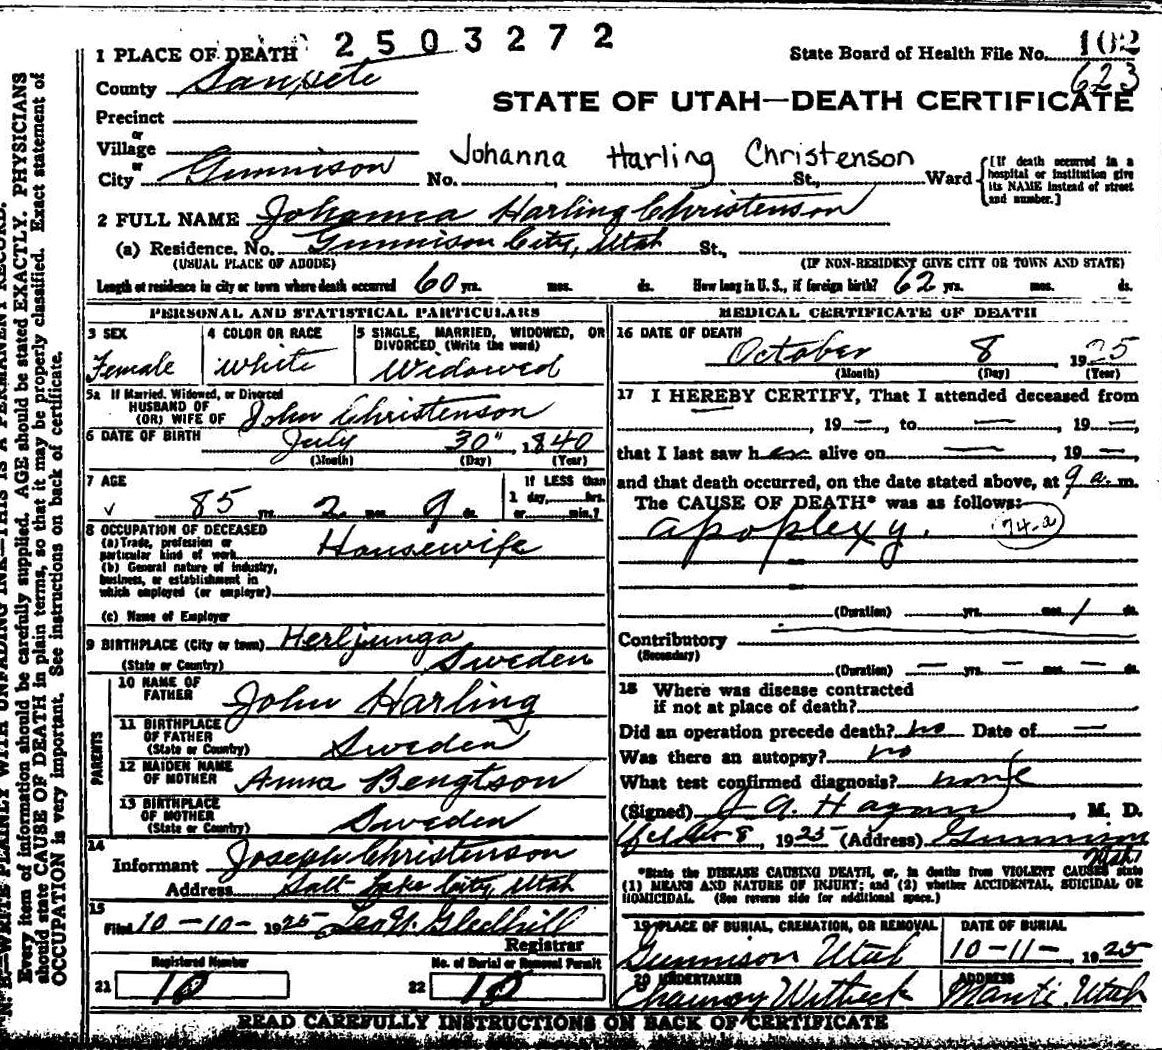 2503272
1 PLACE OF DEATH
State Board of Health File No. 102
623
County Sanpete
STATE OF UTAH—DEATH CERTIFICATE
Precinct
or
Village
or
Johanna Harling Christenson
City Gunnison No. , St., Ward
[If death occurred in a hospital or institution give its NAME instead of street and number.]
2 FULL NAME Johanna Harling Christenson
(a) Residence. No. Gunnison City, Utah St.,
(USUAL PLACE OF ABODE) (IF NON-RESIDENT GIVE CITY OR TOWN AND STATE)
Length of residence in city or town where death occurred 60 yrs. mos. ds. How long in U. S., if foreign birth? 62 yrs. mos. ds.
PERSONAL AND STATISTICAL PARTICULARS
3 SEX
Female
4 COLOR OR RACE
White
5 SINGLE, MARRIED, WIDOWED, OR DIVORCED (Write the word)
Widowed
5a If Married, Widowed, or Divorced
HUSBAND OF
(OR) WIFE OF John Christenson
6 DATE OF BIRTH July 30" , 1840
(Month) (Day) (Year)
7 AGE
85 yrs. 2 mos. 9 ds.
If LESS than
1 day, hrs.
or min.?
8 OCCUPATION OF DECEASED
(a) Trade, profession or
particular kind of work Housewife
(b) General nature of industry,
business, or establishment in
which employed (or employer)
(c) Name of Employer
9 BIRTHPLACE (City or town) Herljunga
(State or Country) Sweden
PARENTS
10 NAME OF
FATHER John Harling
11 BIRTHPLACE
OF FATHER
(State or Country) Sweden
12 MAIDEN NAME
OF MOTHER Anna Bengtson
13 BIRTHPLACE
OF MOTHER
(State or Country) Sweden
14
Informant Joseph Christenson
Address Salt Lake City, Utah
15
Filed 10-10- 1925 Leo N. Gledhill
Registrar
Registered Number
No. of Burial or Removal Permit
21 10
22 10
MEDICAL CERTIFICATE OF DEATH
16 DATE OF DEATH
October 8 1925
(Month) (Day) (Year)
17 I HEREBY CERTIFY, That I attended deceased from
, 19 — , to — 19 —,
that I last saw her alive on — 19 —,
and that death occurred, on the date stated above, at 9 a. m.
The CAUSE OF DEATH* was as follows:
apoplexy. 74-a
(Duration) yrs. mos. 1 ds.
Contributory
(Secondary)
(Duration) — yrs. — mos. — ds.
18 Where was disease contracted
if not at place of death?
Did an operation precede death? no Date of —
Was there an autopsy? no
What test confirmed diagnosis? none
(Signed) J A. Hagan , M. D.
8 , 1925 (Address) Gunnison
Utah
*State the DISEASE CAUSING DEATH, or, in deaths from VIOLENT CAUSES state
(1) MEANS AND NATURE OF INJURY; and (2) whether ACCIDENTAL, SUICIDAL OR
HOMICIDAL. (See reverse side for additional space.)
19 PLACE OF BURIAL, CREMATION, OR REMOVAL
Gunnison Utah
DATE OF BURIAL
10-11- 1925
20 UNDERTAKER
Witbeck
ADDRESS
Manti Utah
READ CAREFULLY INSTRUCTIONS ON BACK OF CERTIFICATE
N. B.—WRITE PLAINLY WITH UNFADING INK—THIS IS A PERMANENT RECORD.
Every item of information should be carefully supplied. AGE should be stated EXACTLY. PHYSICIANS
should state CAUSE OF DEATH in plain terms, so that it may be properly classified. Exact statement of
OCCUPATION is very important. See instructions on back of certificate.